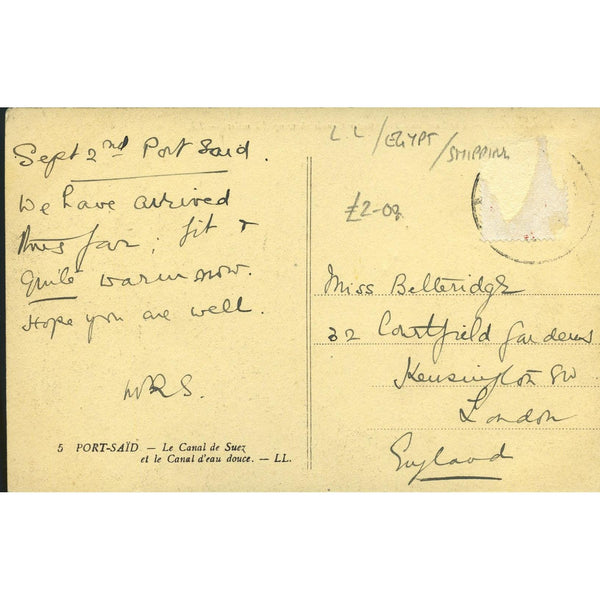 L.L / EGYPT / SHIPPING
£2-00
Sept 2nd Port Said.
We have arrived
thus far, fit &
quite warm now.
Hope you are well.
WRS.
5 PORT-SAÏD — Le Canal de Suez
et le Canal d'eau douce. — LL.
Miss Betteridge
32 Courtfield Gardens
Kensington SW
London
England